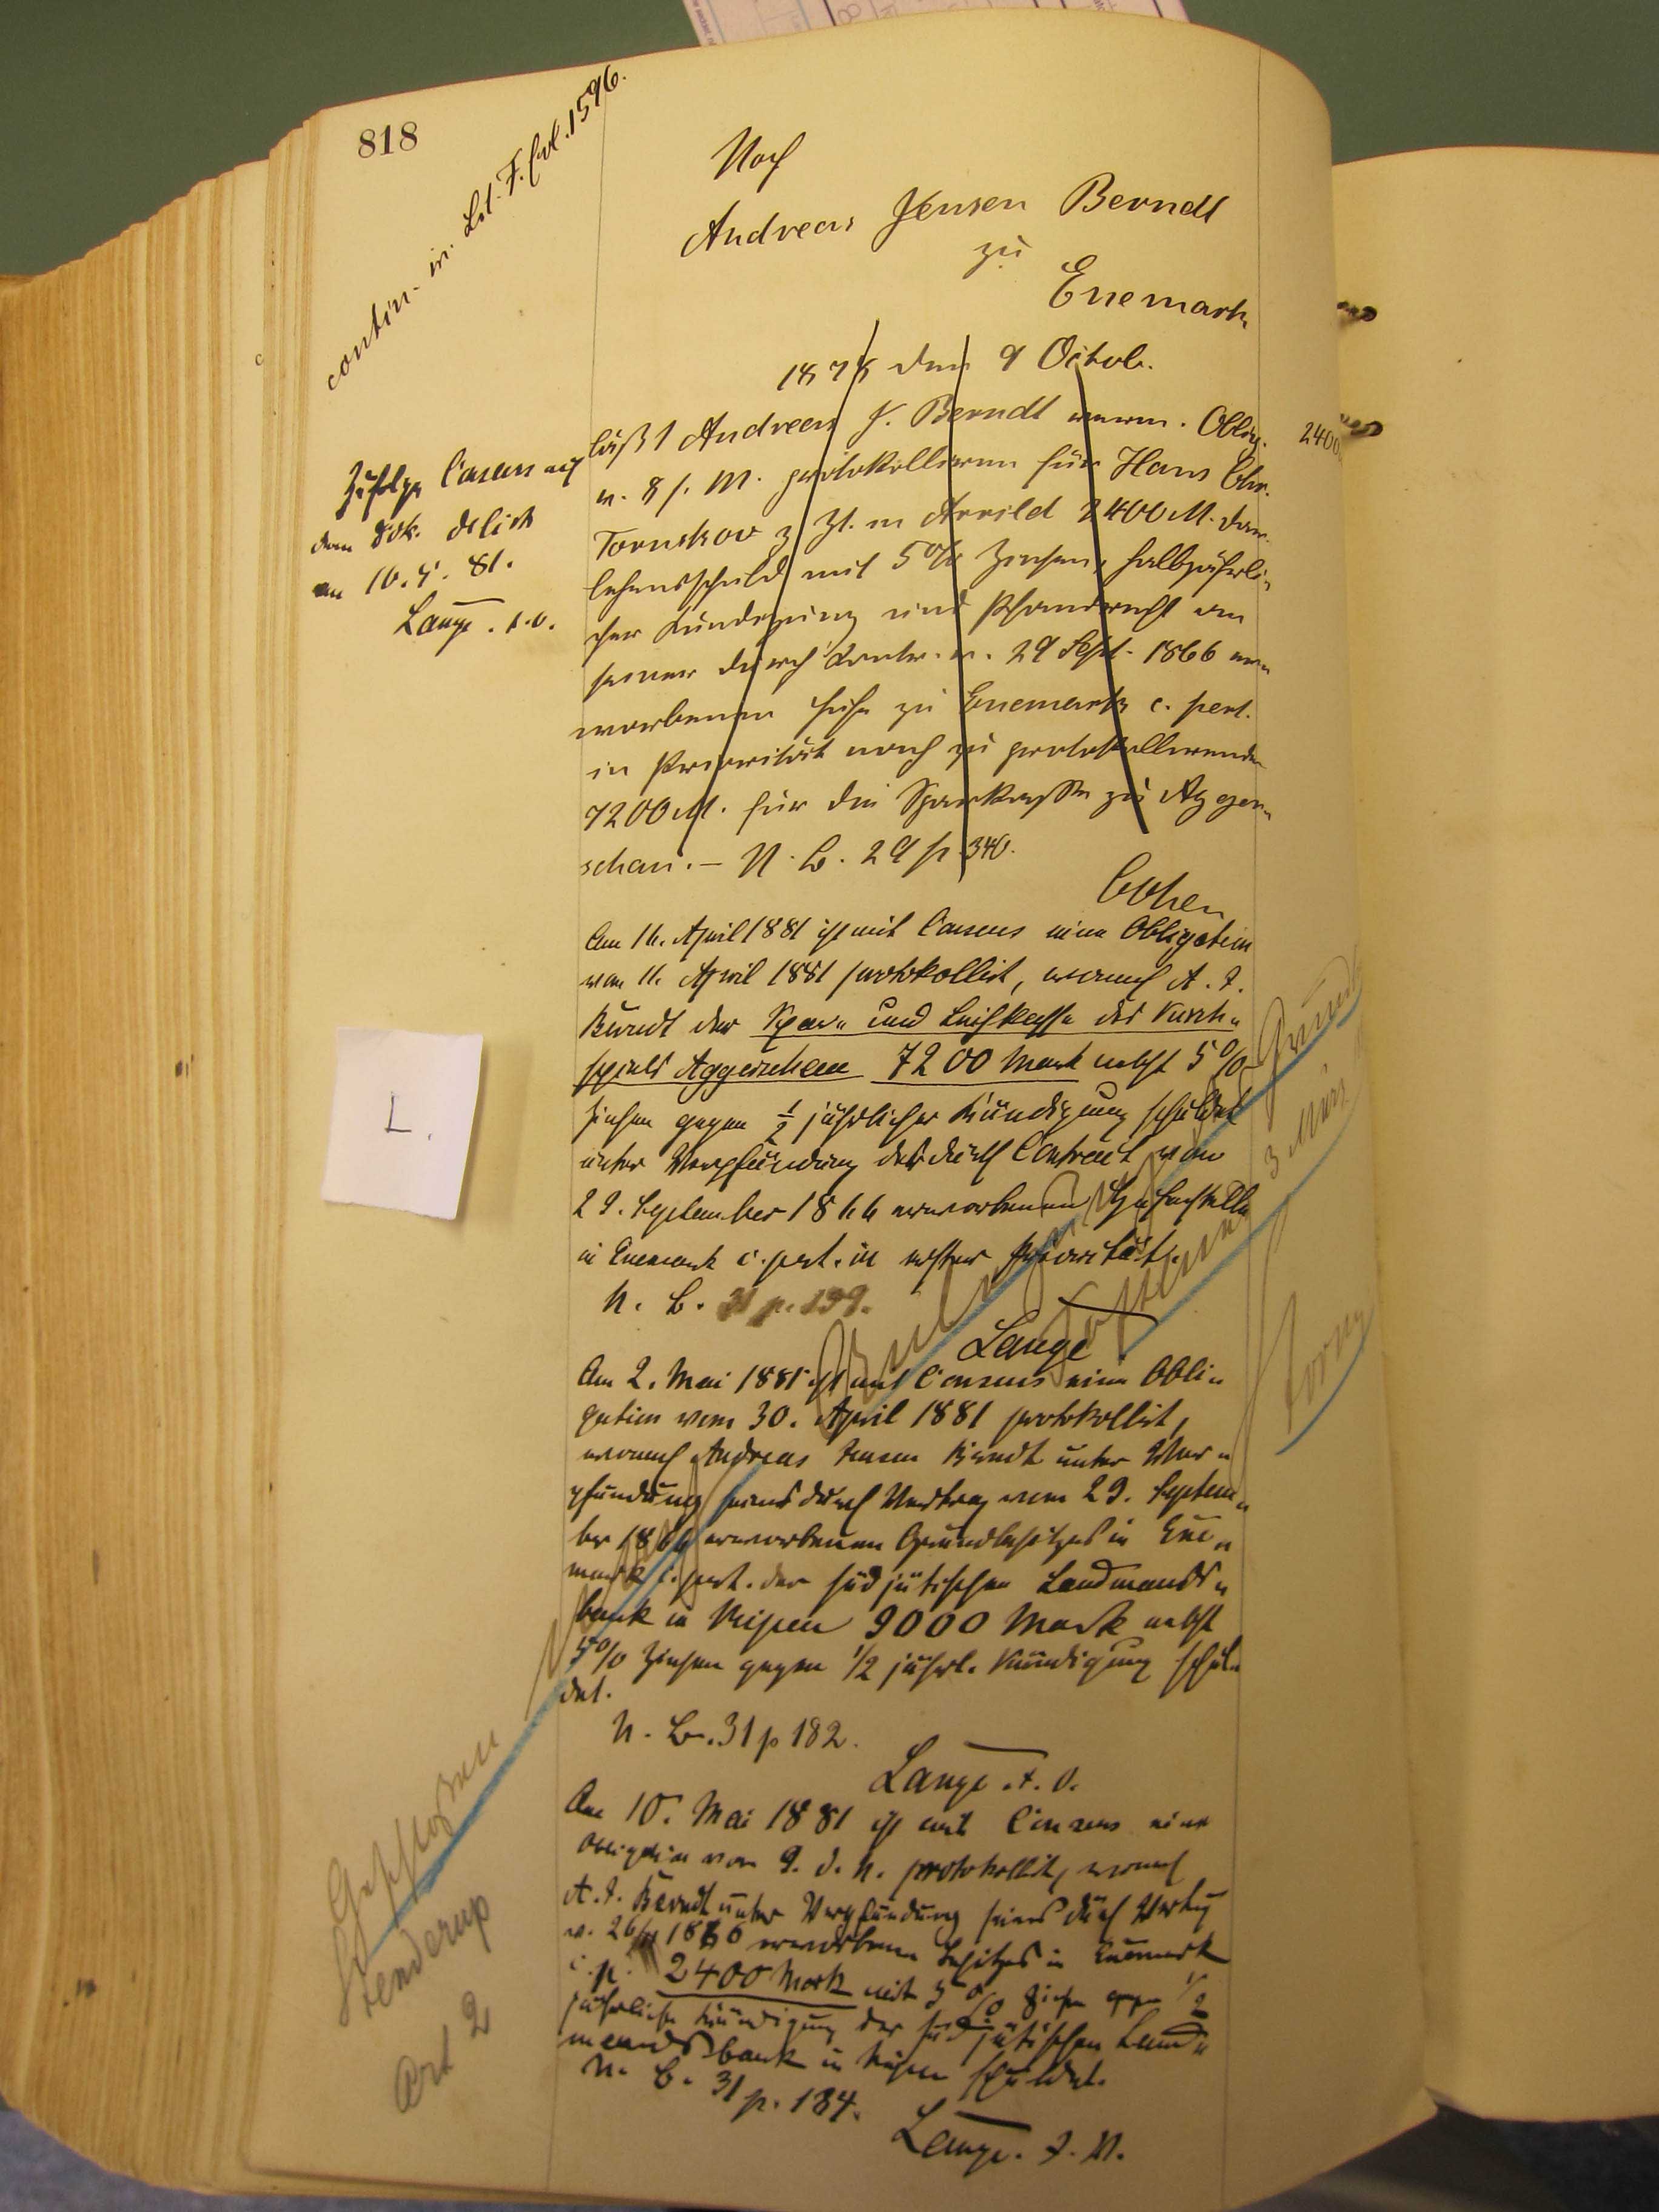 818
contin. in. Lit. F. fol. 1596.
Noch
Andreas Jensen Berndt
zu
Enemark
1878 den 9 Octob.
läßt Andreas J. Berndt Oblig.
v. 8 f. M. protokolliren für Hans Chr.
Tornskov z. Zt. in Arrild 2400 M. Dar-
lehensschuld mit 5% Zinsen, halbjährli-
cher Kündigung und Pfandrecht an
seiner durch Contr. v. 29 Sept. 1866 er-
worbenen Hufe zu Enemark c. pert.
in Priorität nach zu protokollirenden
7200 M. für die Sparkasse zu Agger-
schau. — N. B. 29 p. 340.
2400
Cohen
Zufolge Consens auf
dem Dok. delirt
am 10. 5. 81.
Lange
Am 16. April 1881 ist mit Consens eine Obligation
vom 11. April 1881 protokollirt, wonach A. J.
Berndt der Spar- und Leihkasse des Kirch-
spiels Aggerschau 7200 Mark nebst 5%
Zinsen gegen ½ jährlicher Kündigung schuldet
unter Verpfändung der durch Contract vom
29. September 1866 erworbenen Hufenstelle
in Enemark c. pert. in erster Priorität.
N. B. 31 p. 199.
Lange
Am 2. Mai 1881 ist mit Consens eine Obli-
gation vom 30. April 1881 protokollirt,
wonach Andreas Jensen Berndt unter Ver-
pfändung seines durch Vertrag vom 29. Septem-
ber 1866 erworbenen Grundbesitzes in Ene-
mark c. pert. der südjütischen Landmands-
bank in Ripen 9000 Mark nebst
5% Zinsen gegen 1/2 jährl. Kündigung schul-
det.
N. B. 31 p 182.
Lange
Am 10. Mai 1881 ist mit Consens eine
Obligation vom 9. d. M. protokollirt, wonach
A. J. Berndt unter Verpfändung seines durch Vertrag
v. 1866 erworbenen Besitzes in Enemark
c. p. 2400 Mark mit 5% Zinsen gegen 1/2
jährliche Kündigung der südjütischen Land-
mandsbank in Ripen schuldet.
N. B. 31 p. 184.
Lange
L.
Geschlossen
Stenderup
Art 2
3 März